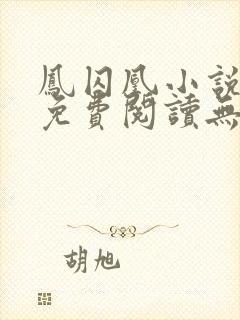 鳳囚凰小說
免費閱讀無
胡旭